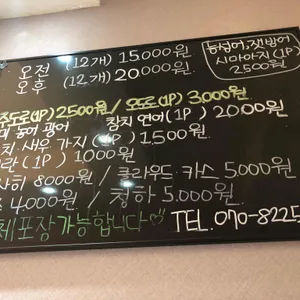 오전 (12개) 15.000원
오후 (12개) 20000원
농성어, 잿방어
시마아지(1P)
2500원
주도로(1P) 2500원 / 오도로(1P) 3,000원
농어 광어 참치 연어(1P) 2000원
치 · 새우 가지(1P) 1,500원
란(1P) 1000원
사히 8000원 / 클라우드 · 카스 5000원
4,000원 / 청하 5.000원
체포장가능합니다 TEL. 070-8225